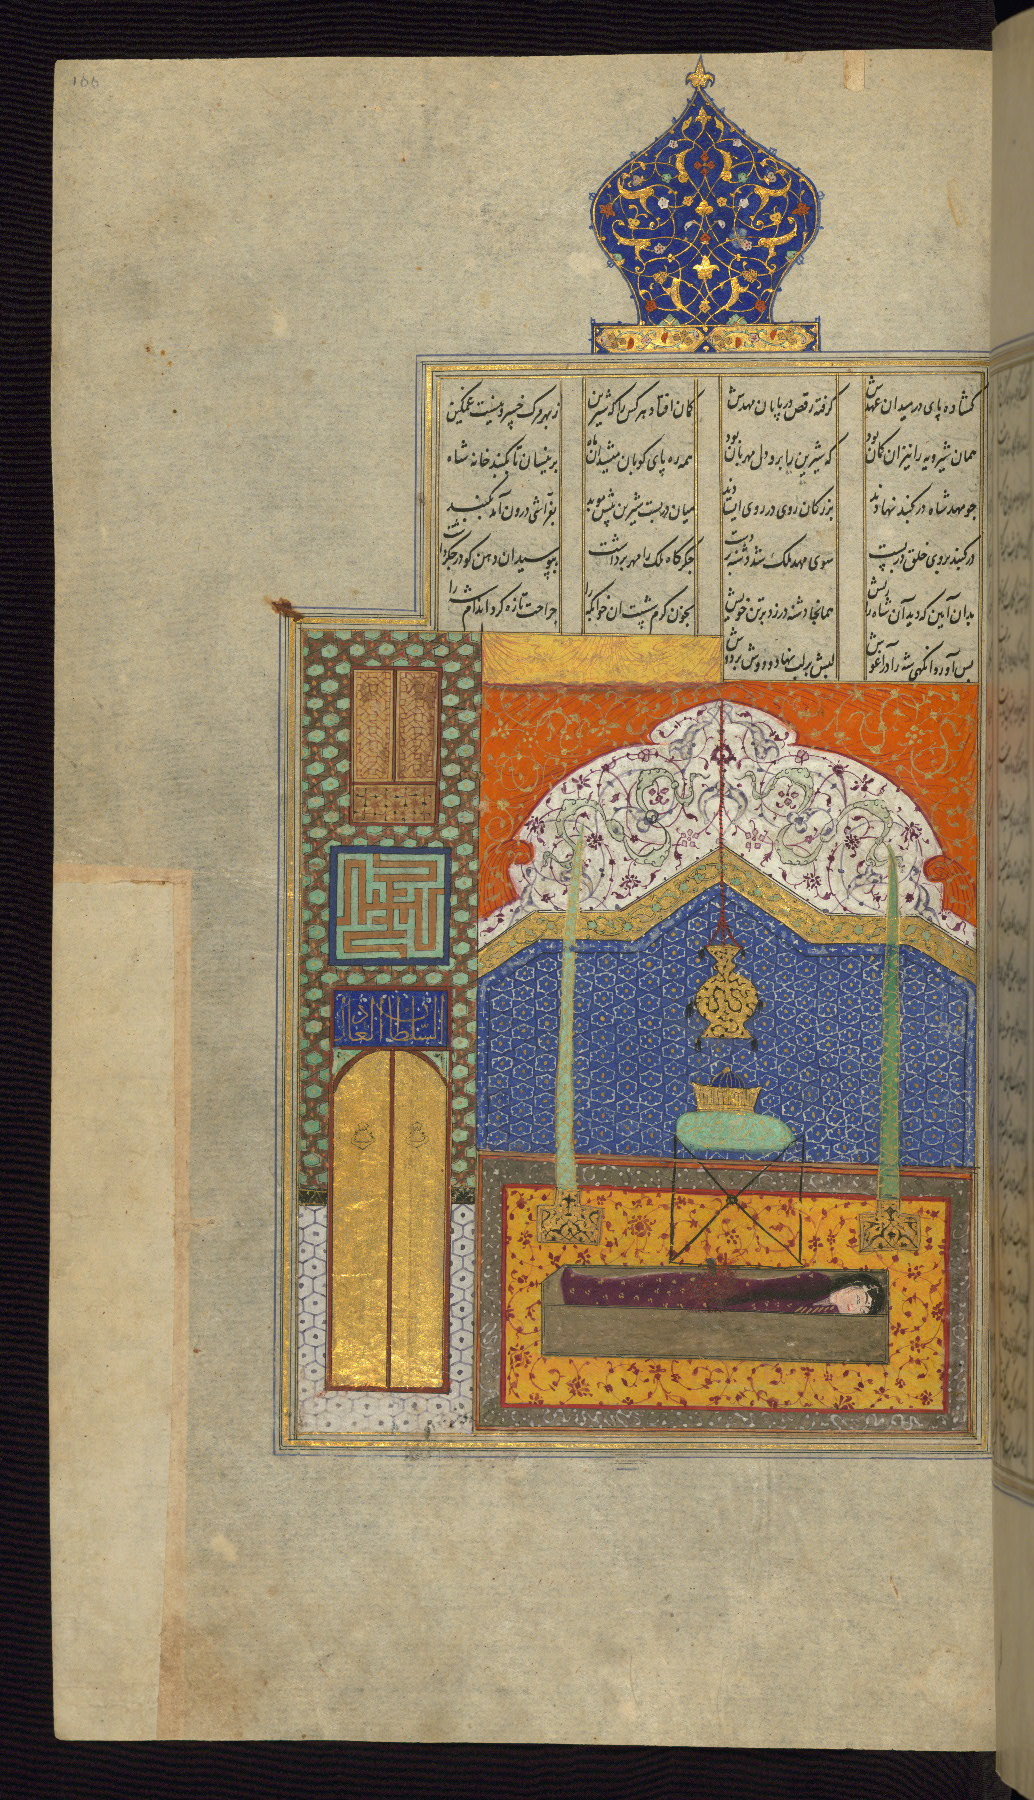 ۱۵۵
گشاده پای در میدان عهدش گرفته رقص در پایان مهدش گمان افتاد هر کس را که شیرین ز بهر مرگ خسرو نیست غمگین
همان شیرویه را نیز آن گمان بود که شیرین را برو دل مهربان بود همه ره پای کوبان میشد آن ماه برینسان تا بگنبد خانه شاه
چو مهد شاه در گنبد نهادند بزرگان روی در روی ایستادند میان در بست شیرین پیش موبد بفراشی درون آمد بگنبد
در گنبد بروی خلق در بست سوی مهد ملک شد دشنه در دست جگرگاه ملک را مهر برداشت ببوسید آن دهن کو در جگر داشت
بدان آیین که دید آن شاه را ریش همانجا دشنه زد بر تن خویش بخون گرم شست آن خوابگه را جراحت تازه کرد اندام شه را
پس آورد آنگهی شه را در آغوش لبش بر لب نهاد و دوش بر دوش
السلطان العادل